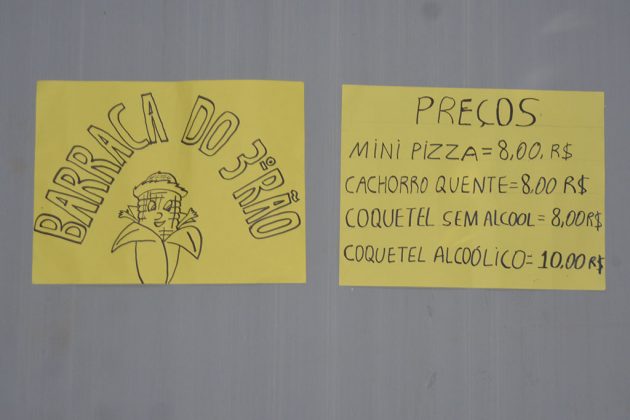 BARRACA DO 3ºRÃO
PREÇOS
MINI PIZZA = 8,00, R$
CACHORRO QUENTE = 8,00 R$
COQUETEL SEM ALCOOL = 8,00 R$
COQUETEL ALCOÓLICO = 10,00 R$